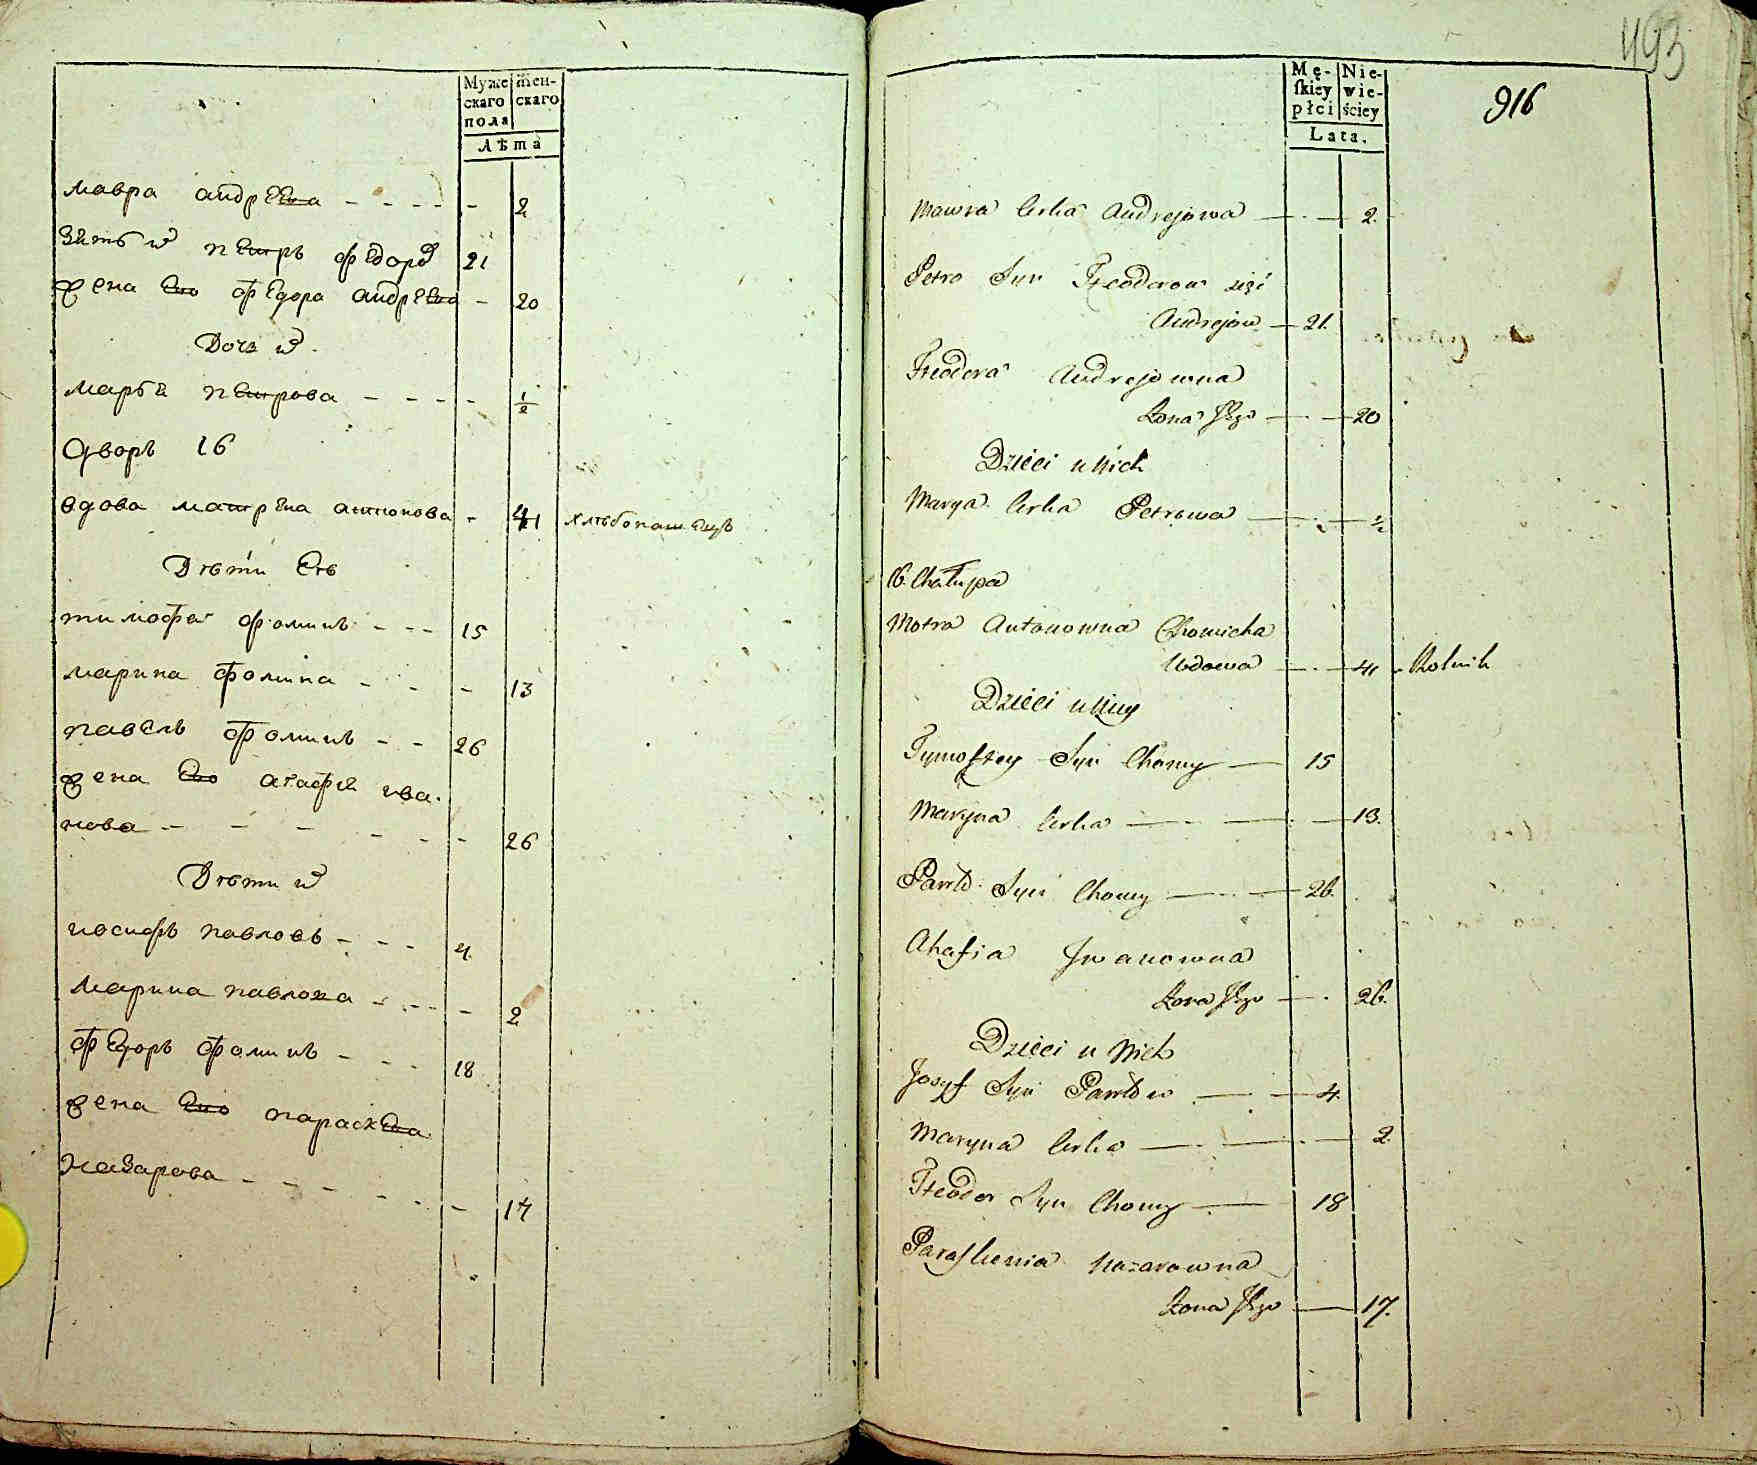 Муже
скаго
пола
жен-
скаго
Лѣта
мавра андреева - - - - - 2
зять их петръ федоров 21
жена ево федора андреева - 20
Дочь их
марья петрова - - - - 1/2
Дворъ 16
вдова матрена антонова - 41 хлѣбопашецъ
Дѣти Еѣ
тимофей фоминъ - - - 15
марина фомина - - - 13
павелъ фоминъ - - 26
жена ево агафия ива-
нова - - - - - - 26
Дѣти их
иосифъ павловъ - - - 4
марина павлова - - - - 2
федоръ фоминъ - - - 18
жена ево параскева
назарова - - - - - - - 17
493
Mę-
skiey
płci
Nie-
wie-
ściey
Lata.
916
Mawra Corka Andrejowa — 2.
Petro Syn Fteodorow zięć
Andrejow — 21.
Fteodora Andrejowna
Żona Jego — 20
Dzieci u Nich
Marya Corka Petrowa — 1/2
16. Chałupa
Motra Antonowna Chomicha
Wdowa — 41 Rolnik
Dzieci u Niey
Tymoftey Syn Chomy — 15
Maryna Corka — 13.
Pawło Syn Chomy — 26.
Ahafia Jwanowna
Żona Jego — 26.
Dzieci u Nich
Josyf Syn Pawłow — 4.
Maryna Corka — 2.
Fteodor Syn Chomy — 18
Paraskewia Nazarowna
Żona Jego — 17.